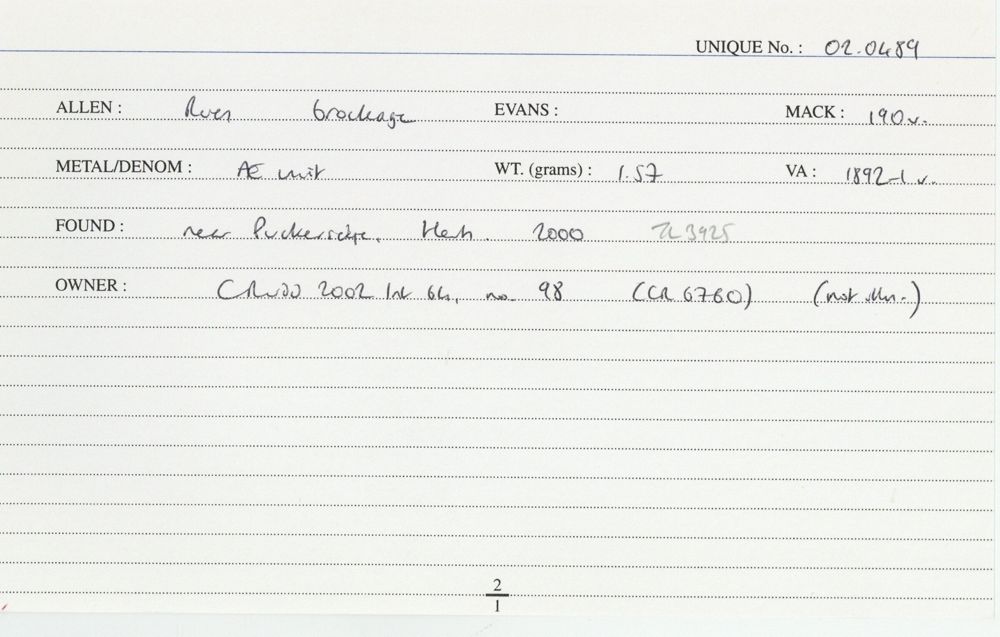 UNIQUE No. : 02.0489
ALLEN : Rues brockage EVANS : MACK : 190v.
METAL/DENOM : Æ unit WT. (grams) : 1.57 VA : 1892-1 v.
FOUND : near Puckeridge, Herts. 2000 TL3925
OWNER : 2002 no. 98 (CR 6760) (not illn.)
2
1